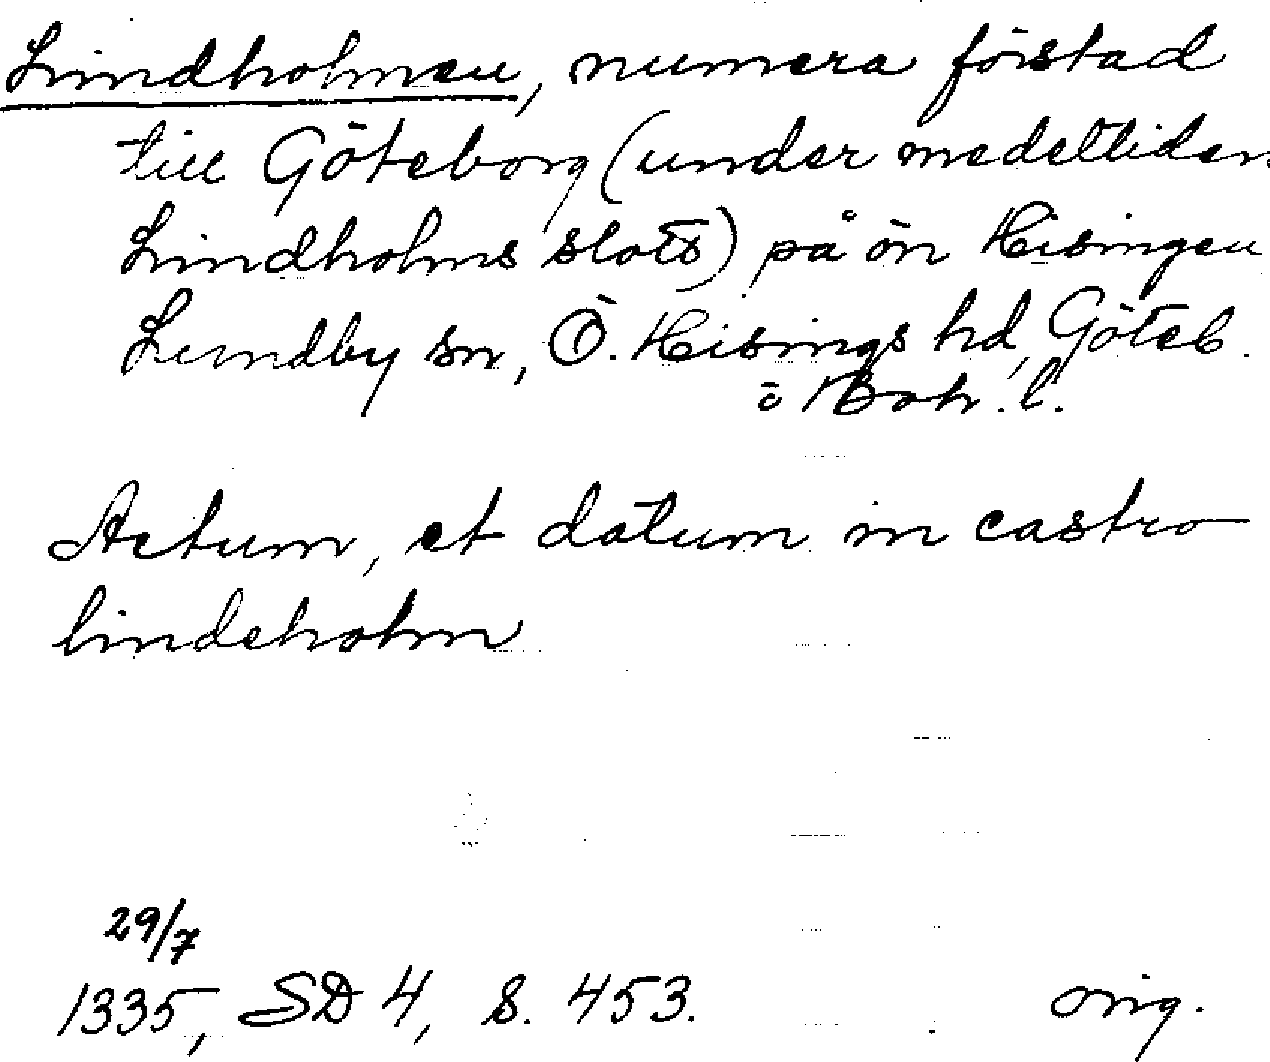 Lindholmen, numera förstad
till Göteborg (under medeltiden
Lindholms slott) på ön Hisingen
Lundby sn, Ö. Hisings hd, Göteb.
o Boh. l.
Actum, et datum in castro
lindeholm
29/7
1335, SD 4, s. 453. orig.